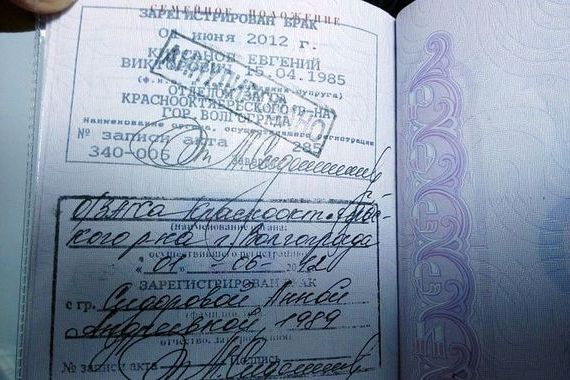 СЕМЕЙНОЕ ПОЛОЖЕНИЕ
ЗАРЕГИСТРИРОВАН БРАК
01 июня 2012 г.
ЕВГЕНИЙ
15.04.1985
ОТДЕЛОМ
КРАСНООКТЯБРЬСКОГО Р-НА
ГОР. ВОЛГОГРАДА
Наименование органа, осуществившего регистрацию
№ записи акта 285
340-006
О/ЗАГСа Краснооктябрьс-
кого р-на г. Волгограда
(наименование органа:
осуществившего регистрацию)
"01" - 06 - 2012
ЗАРЕГИСТРИРОВАН БРАК
с гр. Сидоровой Анной
Андреевной, 1989
отчество, дата рождения
№ записи акта Подпись